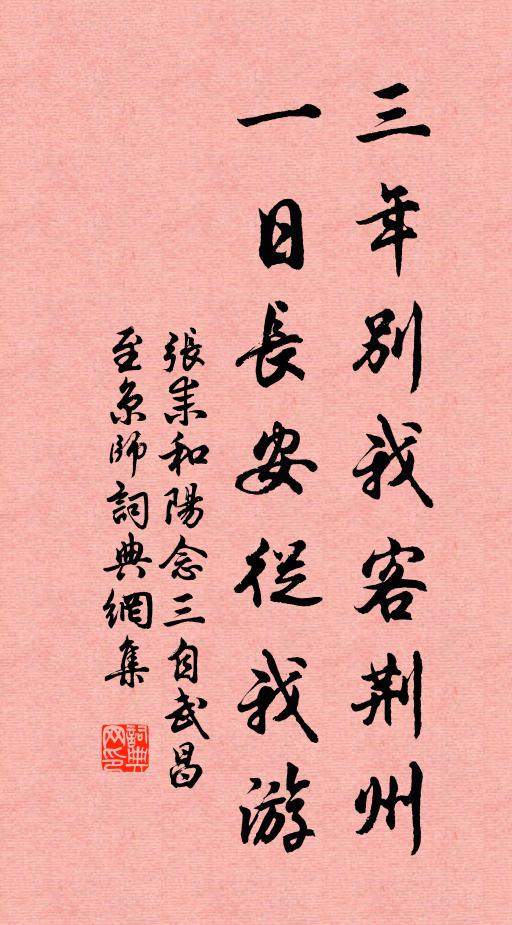 三年別我客荆州
一日長安從我游
張耒和陽念三自武昌
至京師詞典網集
詞典网印